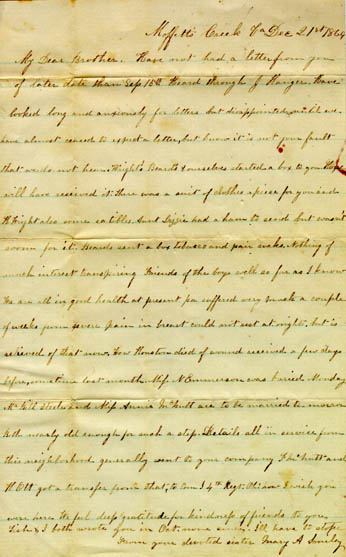 Moffett's Creek Va Dec 21st 1864
My Dear Brother. Have not had a letter from you
of later date than Sep 15th Heard through J Hanger. Have
looked long and anxiously for letters but disappointed, until we
have almost ceased to expect a letter, but know it is not your fault
that we do not hear. Wright's Beards & ourselves started a box to you. Hope
will have received it. there was a suit of clothes apiece for you and
W Wright also some eatables. Aunt Lizzie had a ham to send but wasn't
room for it. Beards sent a box tobacco and pair socks. Nothing of
much interest transpiring Friends of the boys well so far as I know
We are all in good health at present pa suffered very much a couple
of weeks from severe pain in breast could not rest at night, but is
relieved of that now. How Houston died of wound received a few days
before, sometime last month. Miss N Emmerson was buried Monday
Mr Steele and Miss Annie McNutt are to be married to-morrow
Both nearly old enough for such a step. Details all in service from
this neighborhood generally went to your company McNutt and
W Ott got a transfer from that, to Com I 4th Regt. Oh how I wish you
were here. Heartfelt deep gratitude for kindness of friends to you.
& I both wrote you in Oct. I'll have to stop
From your devoted sister Mary A Smiley